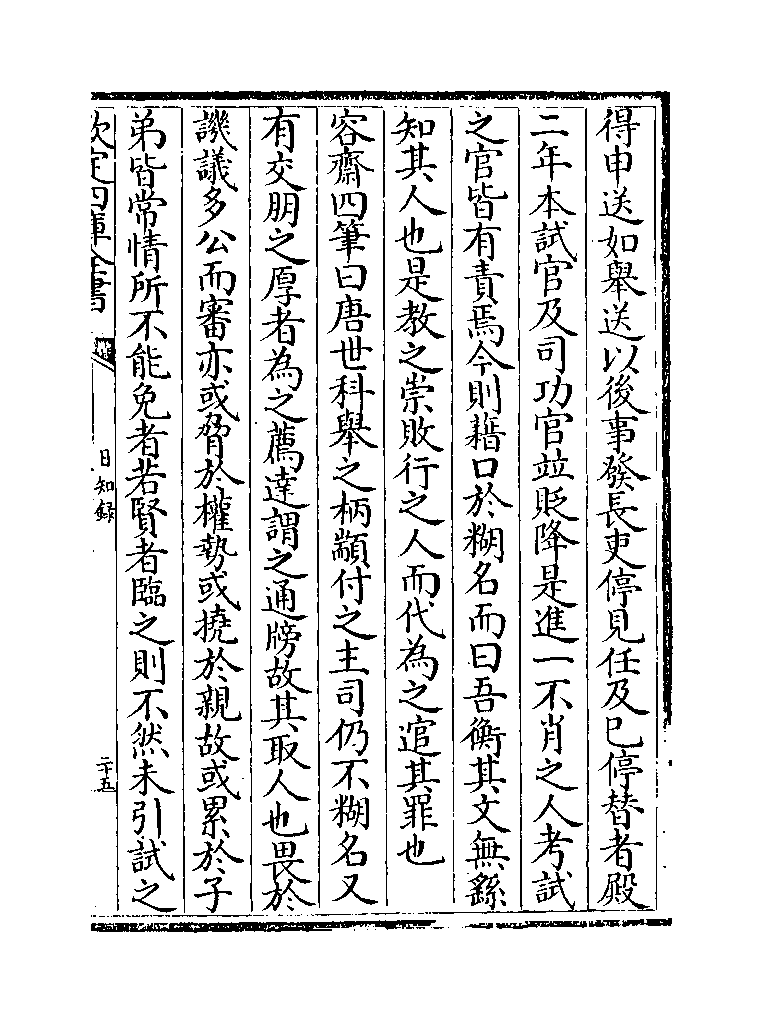 得申送如舉送以後事發長吏停見任及已停替者殿
二年本試官及司功官並貶降是進一不肖之人考試
之官皆有責焉今則藉口於糊名而曰吾衡其文無繇
知其人也是教之崇敗行之人而代為之逭其罪也
容齋四筆曰唐世科舉之柄顓付之主司仍不糊名又
有交朋之厚者為之薦達謂之通牓故其取人也畏於
譏議多公而審亦或脅於權勢或撓於親故或累於子
弟皆常情所不能免者若賢者臨之則不然未引試之
欽定四庫全書
日知錄
二十五